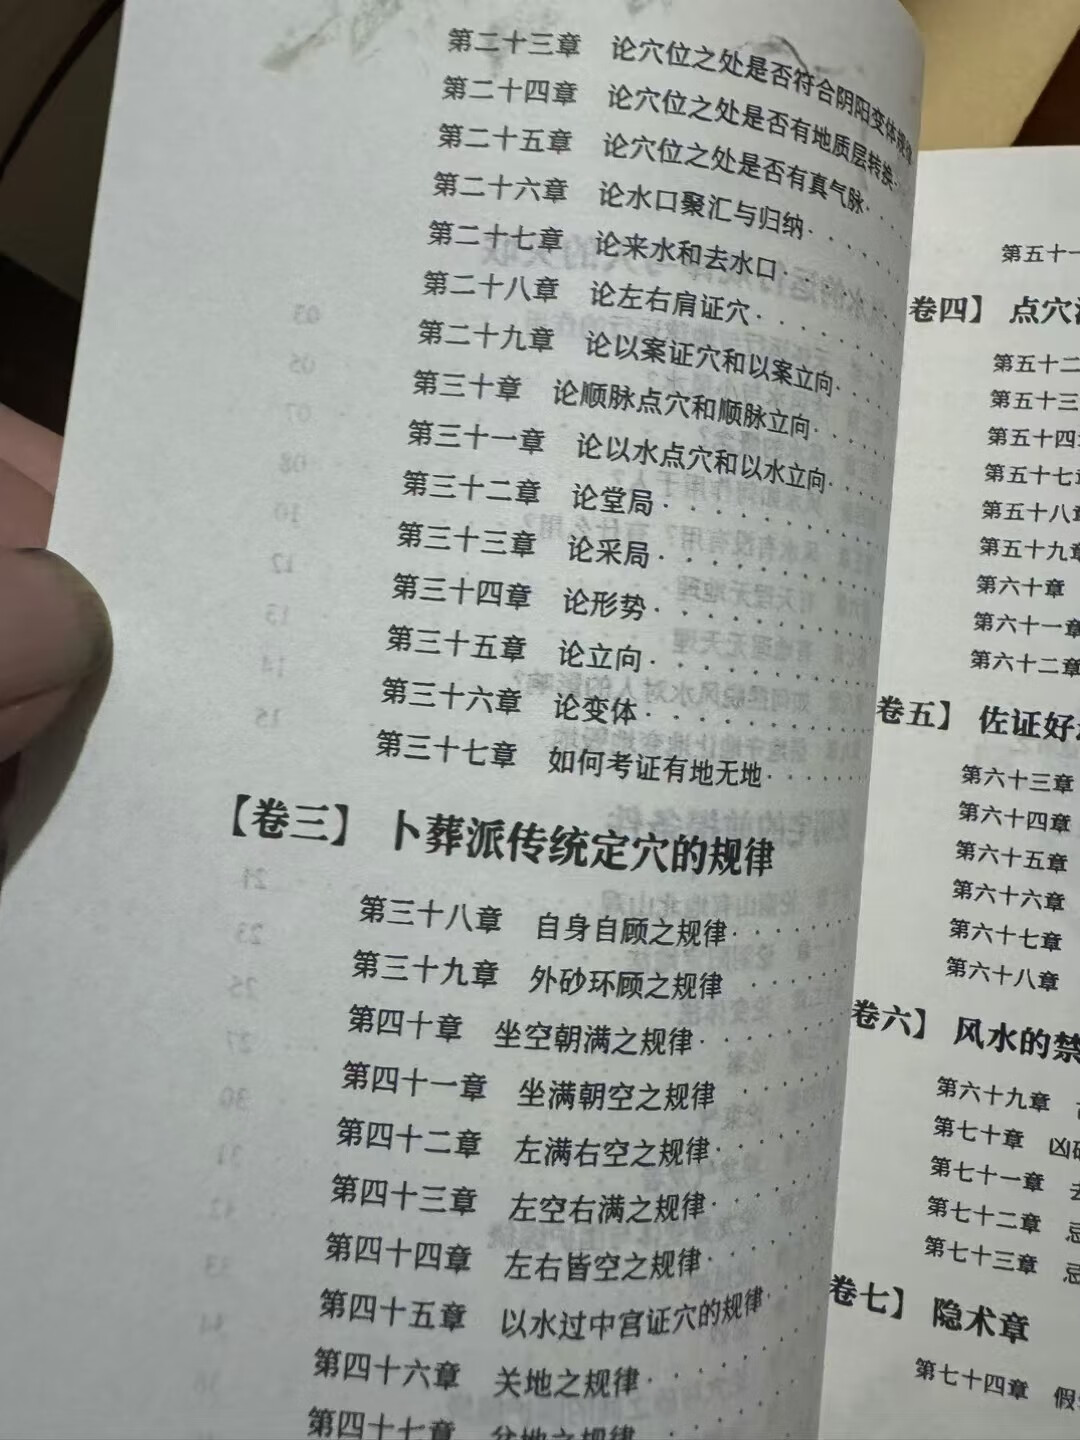 第二十三章 论穴位之处是否符合阴阳变体规律
第二十四章 论穴位之处是否有地质层转换
第二十五章 论穴位之处是否有真气脉
第二十六章 论水口聚汇与归纳
第二十七章 论来水和去水口
第二十八章 论左右肩证穴
第二十九章 论以案证穴和以案立向
第三十章 论顺脉点穴和顺脉立向
第三十一章 论以水点穴和以水立向
第三十二章 论堂局
第三十三章 论采局
第三十四章 论形势
第三十五章 论立向
第三十六章 论变体
第三十七章 如何考证有地无地
【卷三】 卜葬派传统定穴的规律
第三十八章 自身自顾之规律
第三十九章 外砂环顾之规律
第四十章 坐空朝满之规律
第四十一章 坐满朝空之规律
第四十二章 左满右空之规律
第四十三章 左空右满之规律
第四十四章 左右皆空之规律
第四十五章 以水过中宫证穴的规律
第四十六章 关地之规律
第四十七章 盆地之规律
第五十一
卷四】 点穴
第五十二
第五十三
第五十四
第五十七
第五十八
第五十九
第六十章
第六十一章
第六十二章
卷五】 佐证好
第六十三章
第六十四章
第六十五章
第六十六章
第六十七章
第六十八章
卷六】 风水的禁
第六十九章
第七十章 凶
第七十一章
第七十二章 忌
第七十三章 忌
卷七】 隐术章
第七十四章 假